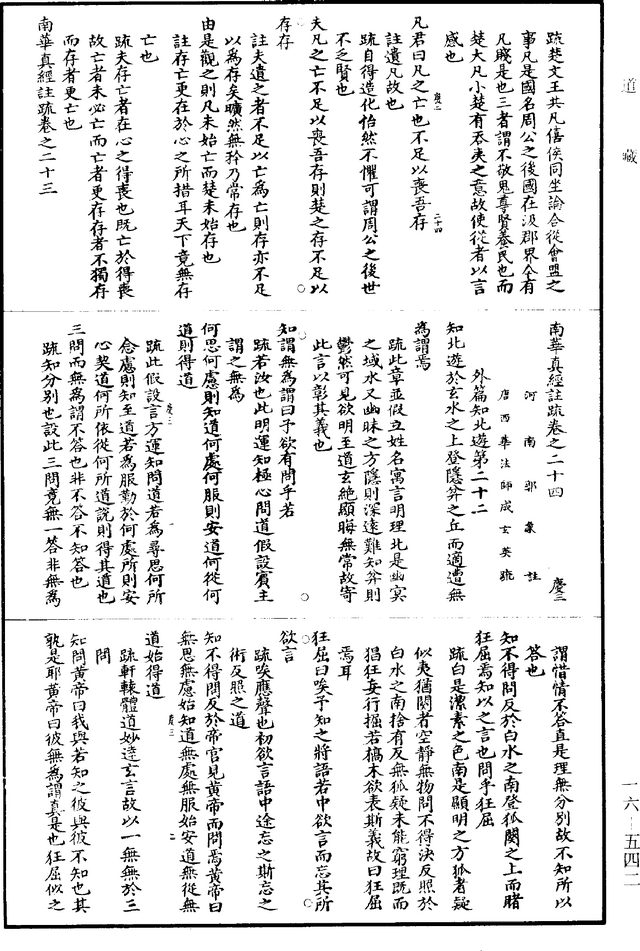 道藏
疏楚文王共凡僖侯同坐論合從會盟之
事凡是國名周公之後國在汲郡界今有
凡賤是也三者謂不敬鬼尊賢養民也而
楚大凡小楚有吞夷之意故使從者以言
感也
凡君曰凡之亡也不足以喪吾存
慶二 二十四
註遺凡故也
疏自得造化怡然不懼可謂周公之後世
不乏賢也
夫凡之亡不足以喪吾存則楚之存不足以
存存
註夫遺之者不足以亡為亡則存亦不足
以為存矣曠然無矜乃常存也
由是觀之則凡未始亡而楚未始存也
註存亡更在於心之所措耳天下竟無存
亡也
疏夫存亡者在心之得喪也既亡於得喪
故亡者未必亡而亡者更存存者不獨存
而存者更亡也
南華真經註疏卷之二十三
南華真經註疏卷之二十四 慶三
河南郭象註
唐西華法師成玄英疏
外篇知北遊第二十二
知北遊於玄水之上登隱弅之丘而適遭無
為謂焉
疏此章並假立姓名寓言明理北是幽冥
之域水又幽昧之方隱則深遠難知弅則
鬱然可見欲明至道玄絕顯晦無常故寄
此言以彰其義也
知謂無為謂曰予欲有問乎若
疏若汝也此明運知極心問道假設賓主
謂之無為
何思何慮則知道何處何服則安道何從何
道則得道
疏此假設言方運知問道若為尋思何所
慶三
念慮則知至道若為服勤於何處所則安
心契道何所依從何所道說則得其道也
三問而無為謂不答也非不答不知答也
疏知分別也設此三問竟無一答非無為
謂惜情不答直是理無分別故不知所以
答也
知不得問反於白水之南登狐闋之上而睹
狂屈焉知以之言也問乎狂屈
疏白是潔素之色南是顯明之方狐者疑
似夷猶闋者空靜無物問不得決反照於
白水之南捨有反無狐疑未能窮理既而
猖狂妄行掘若槁木欲表斯義故曰狂屈
焉耳
狂屈曰唉予知之將語若中欲言而忘其所
欲言
疏唉應聲也初欲言語中途忘之斯忘之
術反照之道
知不得問反於帝宮見黃帝而問焉黃帝曰
無思無慮始知道無處無服始安道無從無
道始得道
慶三 二
疏軒轅體道妙達玄言故以一無無於三
問
知問黃帝曰我與若知之彼與彼不知也其
孰是耶黃帝曰彼無為謂真是也狂屈似之
一六—五四二